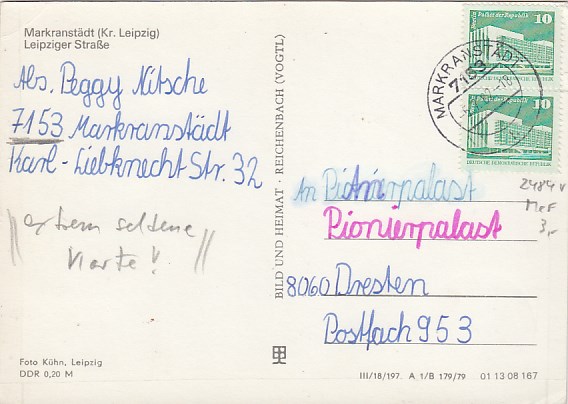 Markranstädt (Kr. Leipzig)
Leipziger Straße
Abs. Peggy Nitsche
7153 Markranstädt
Karl-Liebknecht Str. 32
extrem seltene
Karte!
Foto Kühn, Leipzig
DDR 0,20 M
BILD UND HEIMAT · REICHENBACH (VOGTL)
Berlin Palast der Republik 10
DEUTSCHE DEMOKRATISCHE REPUBLIK
Berlin Palast der Republik 10
DEUTSCHE DEMOKRATISCHE REPUBLIK
MARKRANSTÄDT
7153
An Pionierpalast
Pionierpalast
8060 Dresten
Postfach 953
2484 v
MeF
3,-
III/18/197. A 1/B 179/79 01 13 08 167